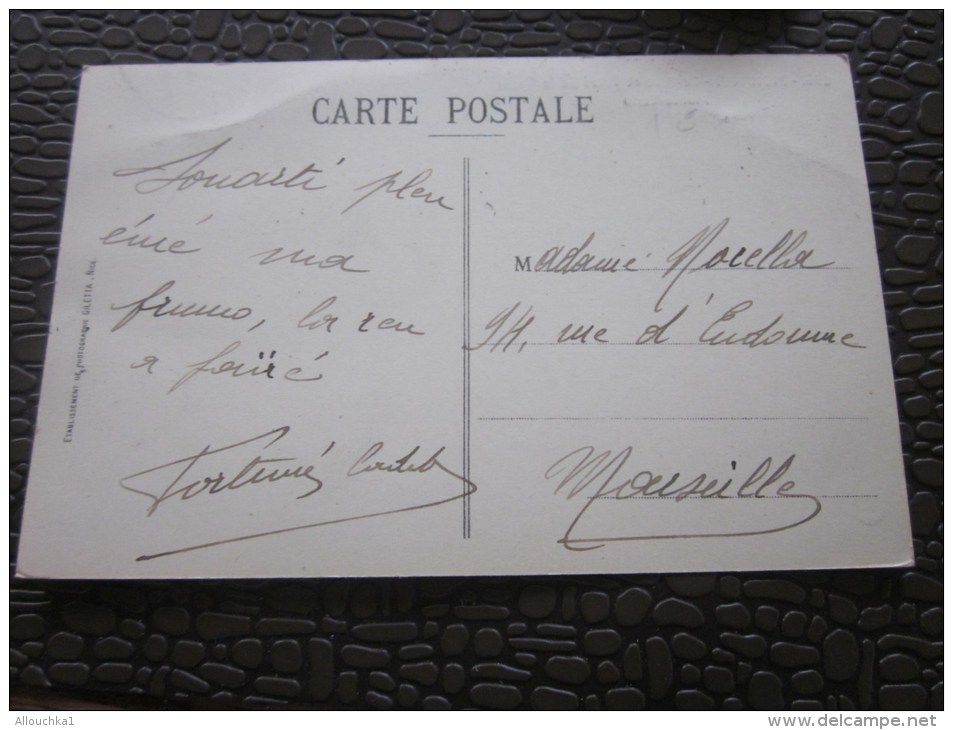 CARTE POSTALE
plen
émé ma
frumo, la ren
a faïré
Fortuné
ETABLISSEMENT DE PHOTOGRAPHIE GILETTA, NICE
Madame Morella
94, rue d'Endoume
Marseille
Allouchka1
www.delcampe.net